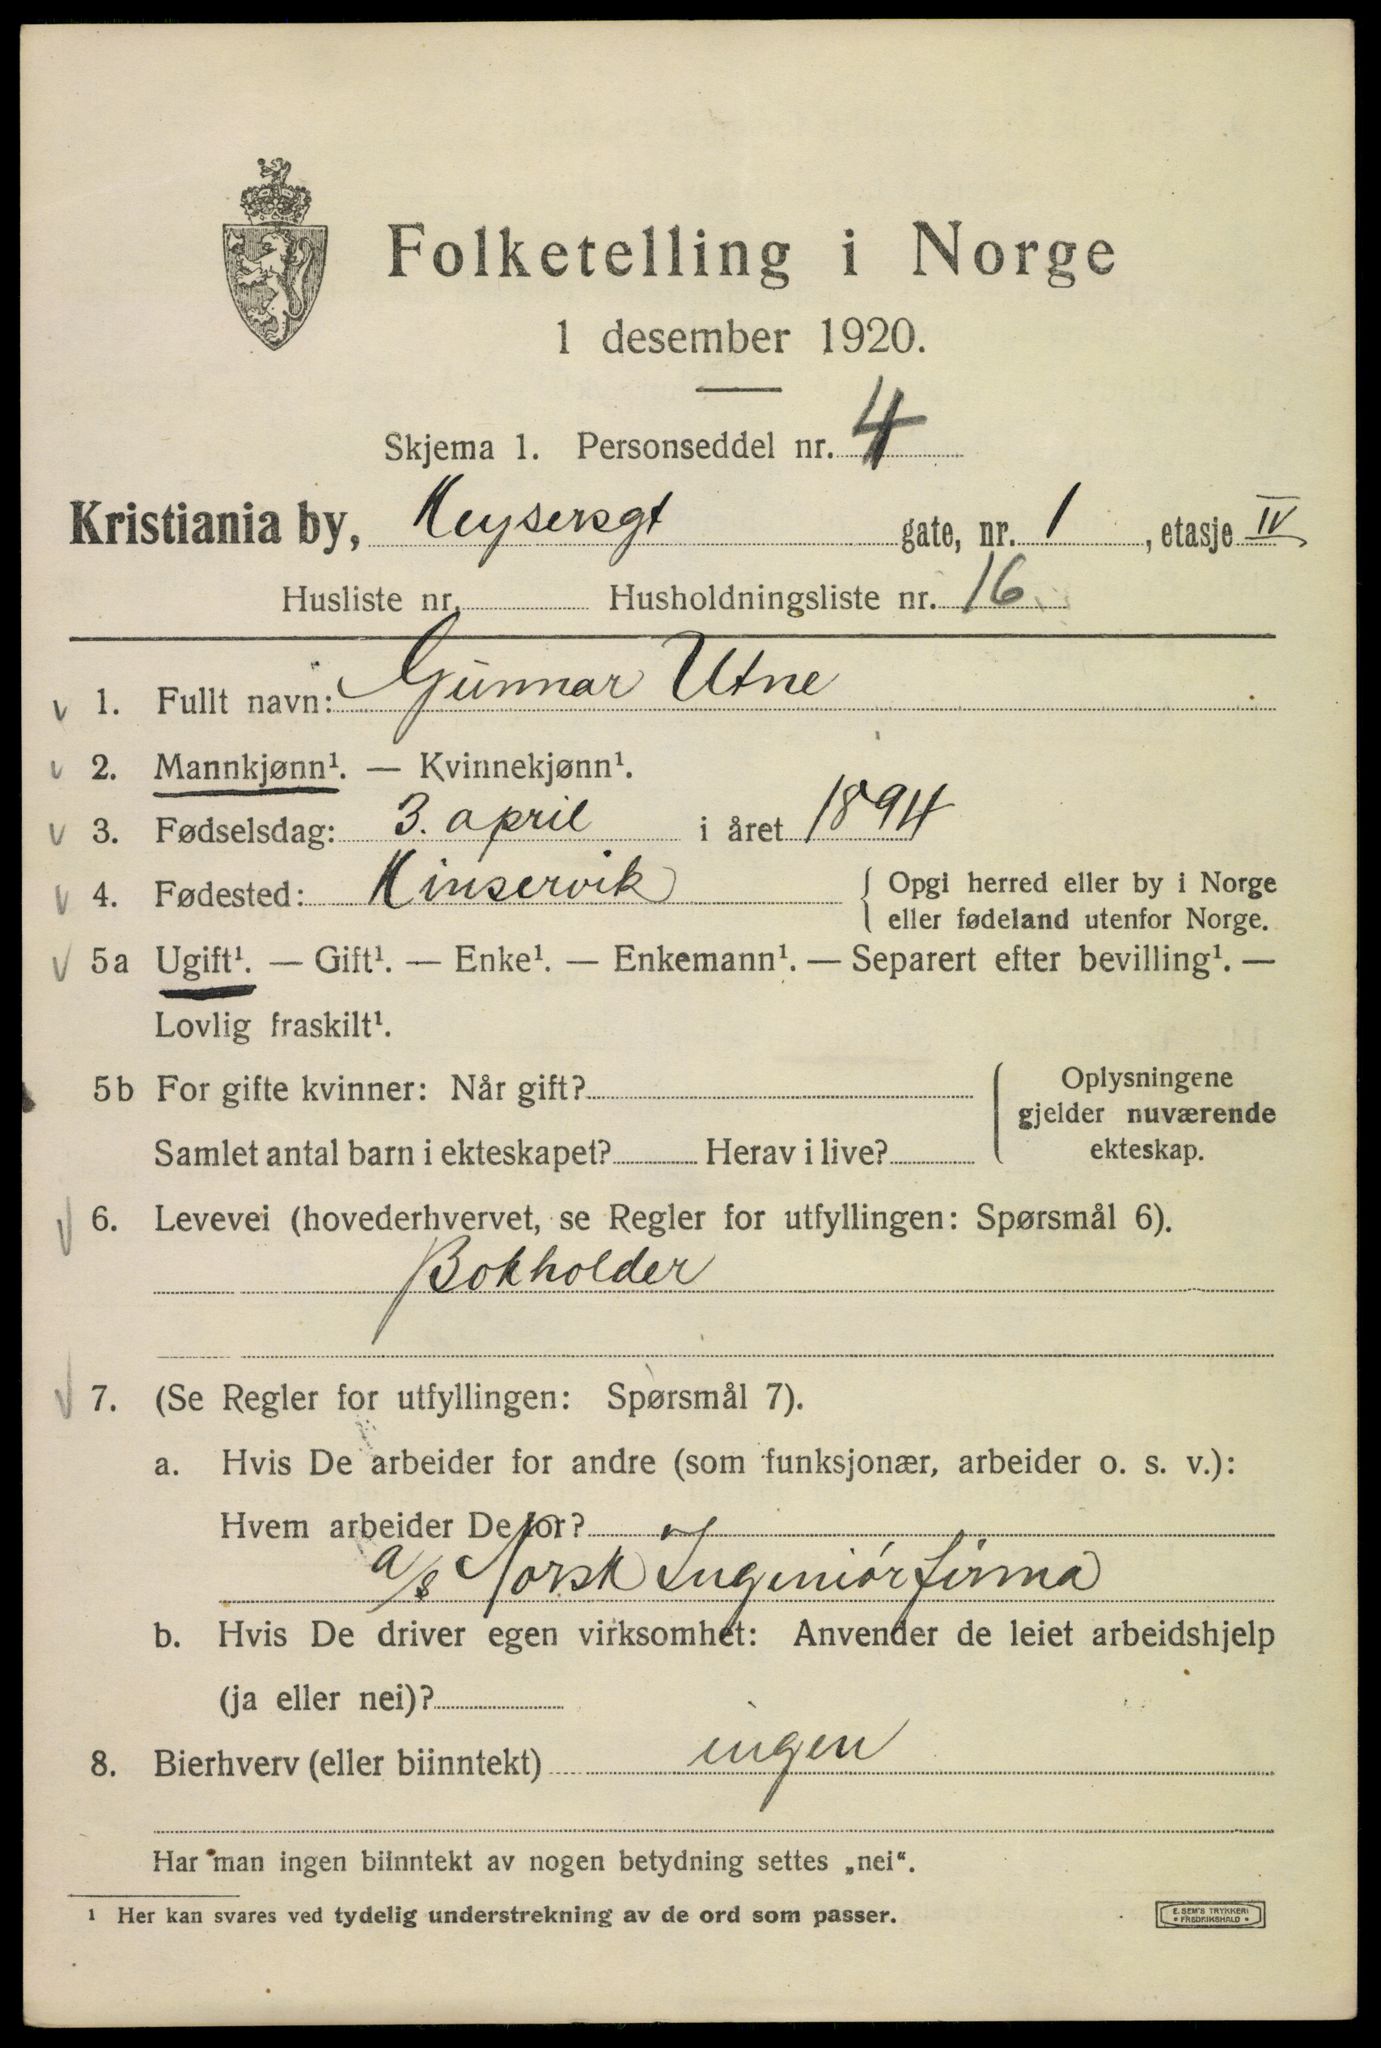 Folketelling i Norge
1 desember 1920.
Skjema 1. Personseddel nr. 4
Kristiania by, Keysersgt gate, nr. 1, etasje IV
Husliste nr. Husholdningsliste nr. 16
1. Fullt navn: Gunnar Utne
2. Mannkjønn¹. — Kvinnekjønn¹.
3. Fødselsdag: 3. april i året 1894
4. Fødested: Kinservik { Opgi herred eller by i Norge
eller fødeland utenfor Norge.
5a Ugift¹. — Gift¹. — Enke¹. — Enkemann¹. — Separert efter bevilling¹. —
Lovlig fraskilt¹.
5b For gifte kvinner: Når gift?
Samlet antal barn i ekteskapet? Herav i live?
Oplysningene
gjelder nuværende
ekteskap.
6. Levevei (hovederhvervet, se Regler for utfyllingen: Spørsmål 6).
Bokholder
7. (Se Regler for utfyllingen: Spørsmål 7).
a. Hvis De arbeider for andre (som funksjonær, arbeider o. s. v.):
Hvem arbeider De for?
a/s Norsk Ingeniörfirma
b. Hvis De driver egen virksomhet: Anvender de leiet arbeidshjelp
(ja eller nei)?
8. Bierhverv (eller biinntekt) ingen
Har man ingen biinntekt av nogen betydning settes „nei“.
¹ Her kan svares ved tydelig understrekning av de ord som passer.
E. SEM'S TRYKKERI
• FREDRIKSHALD •